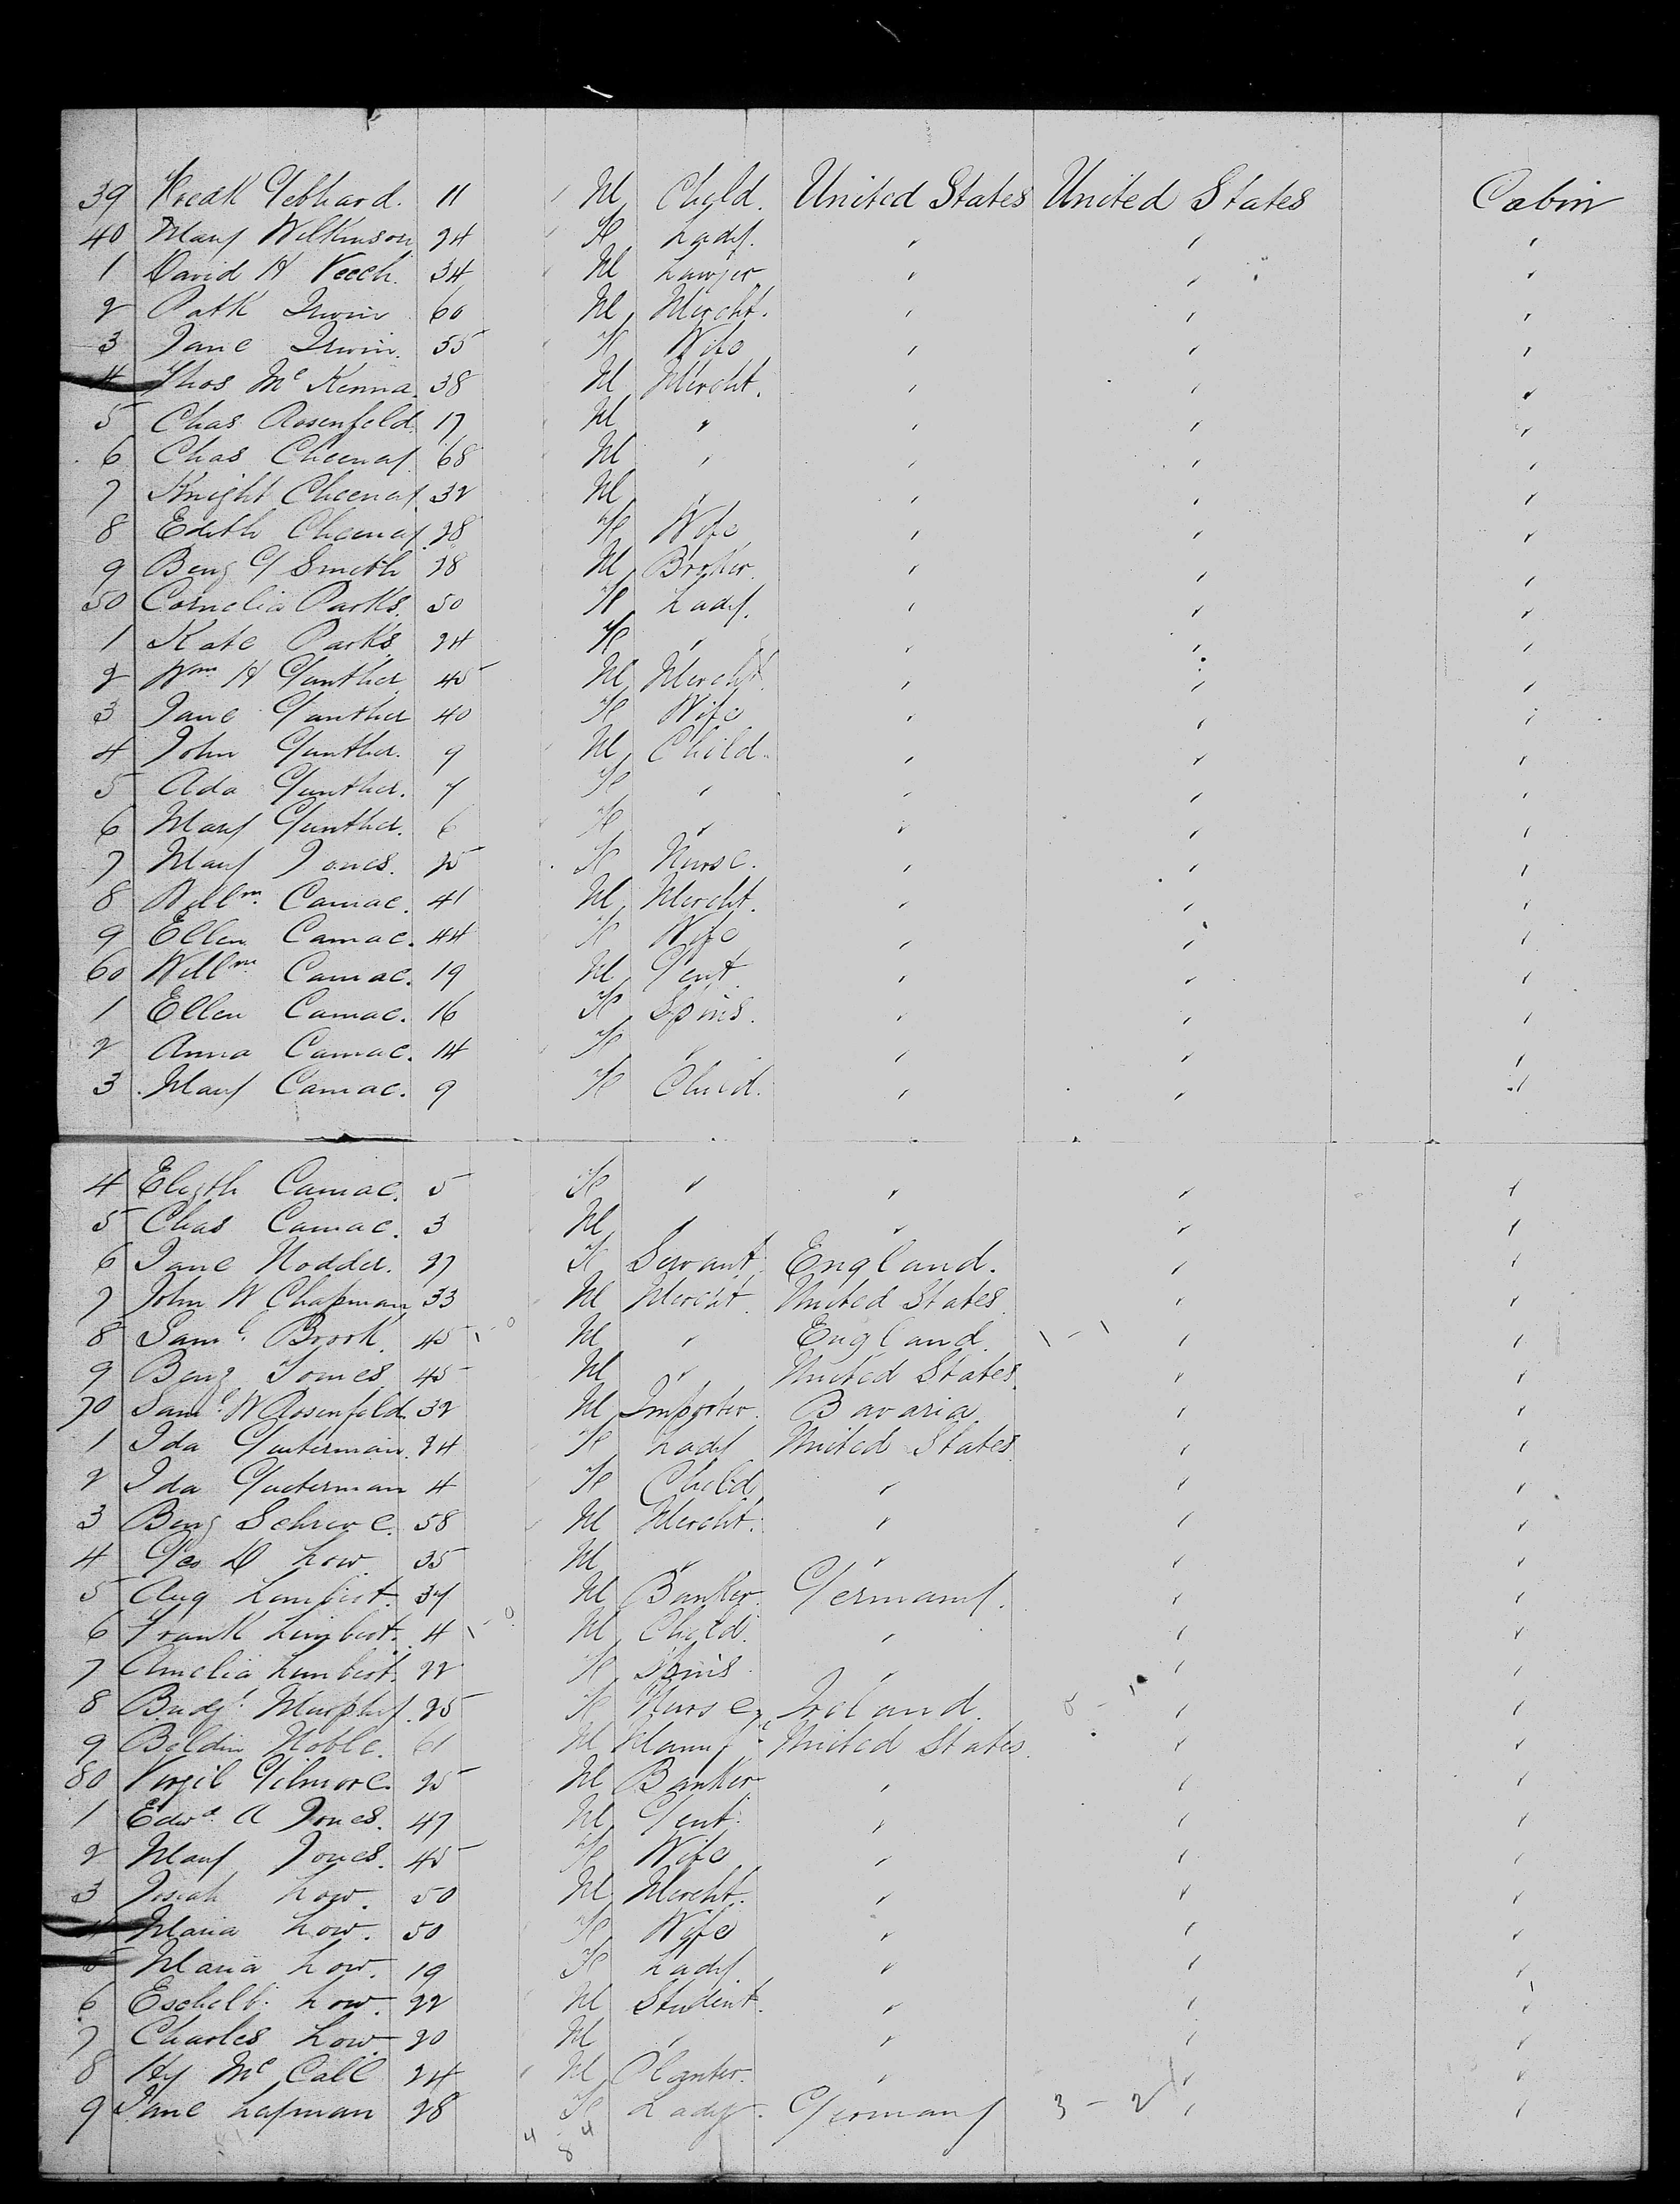 39 Fredk Gebhard. 11 M Child. United States United States Cabin
40 Mary Wilkinson 24 F Lady. " " "
1 David H Veech. 34 M Lawyer " " "
2 Patk Irwin 60 M Mercht. " " "
3 Jane Irwin. 55 F Wife " " "
4 Thos McKenna. 38 M Mercht. " " "
5 Chas Rosenfeld. 17 M " " " "
6 Chas Cheeney. 68 M " " " "
7 Knight Cheeney. 32 M " " " "
8 Edith Cheeney. 28 F Wife " " "
9 Benj G Smith 38 M Broker. " " "
50 Cornelia Parks. 50 F Lady. " " "
1 Kate Parks. 24 F " " " "
2 Wm H Gunther 45 M Mercht. " " "
3 Jane Gunther 40 F Wife " " "
4 John Gunther. 9 M Child. " " "
5 Ada Gunther. 7 F " " " "
6 Mary Gunther. 6 F " " " "
7 Mary Jones. 25 F Nurse. " " "
8 Willm. Camac. 41 M Mercht. " " "
9 Ellen Camac. 44 F Wife " " "
60 Willm. Camac. 19 M Gent. " " "
1 Ellen Camac. 16 F Spins. " " "
2 Anna Camac. 14 F " " " "
3 Mary Camac. 9 F Child. " " "
4 Elizth Camac. 5 F " " " "
5 Chas Camac. 3 M " " " "
6 Jane Hodder. 27 F Servant. England. " "
7 John W Chapman 33 M Mercht. United States " "
8 Saml. Brook. 45 M " England. " "
9 Benj Tomes 45 M " United States. " "
70 Saml. W Rosenfeld. 32 M Importer. Bavaria. " "
1 Ida Guterman. 24 F Lady United States " "
2 Ida Guterman 4 F Child " " "
3 Benj Schreve. 58 M Mercht. " " "
4 Geo D Low 35 M " " " "
5 Aug Limbert. 37 M Banker. Germany. " "
6 Frank Limbert. 4 M Child. " " "
7 Amelia Limbert. 22 F Spins. " " "
8 Budgt. Murphy. 25 F Nurse Ireland. " "
9 Beldin Noble. 61 M Manuf United States. " "
80 Virgil Gilmore. 25 M Banker " " "
1 Edwd. A Jones. 47 M Gent. " " "
2 Mary Jones. 45 F Wife " " "
3 Josiah Low. 50 M Mercht. " " "
Maria Low. 50 F Wife " " "
5 Maria Low. 19 F Lady. " " "
6 Low. 22 M Student. " " "
7 Charles Low. 20 M " " " "
8 Hy McCall 24 M Planter. " " "
9 Jane Lapman 28 F Lady. Germany 3 - 2 " "